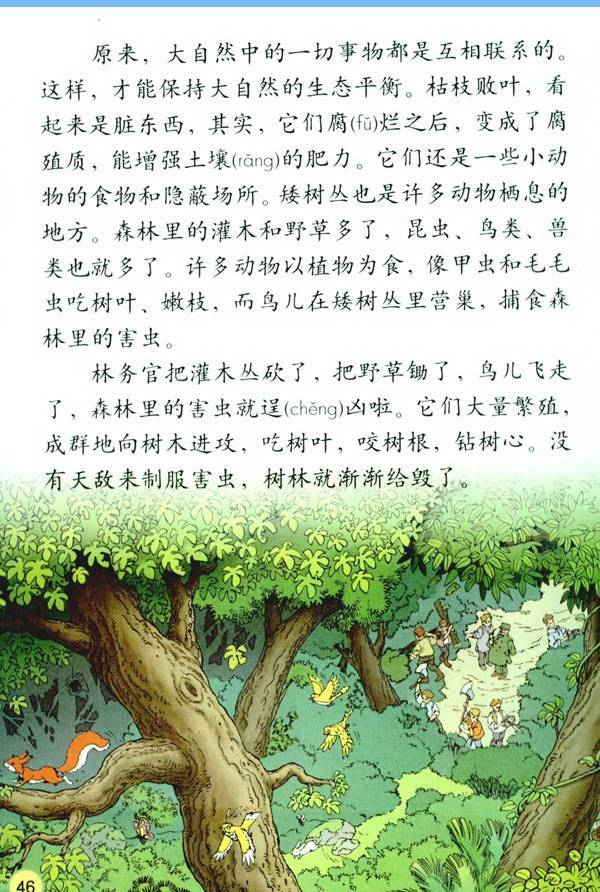 原来，大自然中的一切事物都是互相联系的。
这样，才能保持大自然的生态平衡。枯枝败叶，看
起来是脏东西，其实，它们腐(fǔ)烂之后，变成了腐
殖质，能增强土壤(rǎng)的肥力。它们还是一些小动
物的食物和隐蔽场所。矮树丛也是许多动物栖息的
地方。森林里的灌木和野草多了，昆虫、鸟类、兽
类也就多了。许多动物以植物为食，像甲虫和毛毛
虫吃树叶、嫩枝，而鸟儿在矮树丛里营巢，捕食森
林里的害虫。
林务官把灌木丛砍了，把野草锄了，鸟儿飞走
了，森林里的害虫就逞(chěng)凶啦。它们大量繁殖，
成群地向树木进攻，吃树叶，咬树根，钻树心。没
有天敌来制服害虫，树林就渐渐给毁了。
46